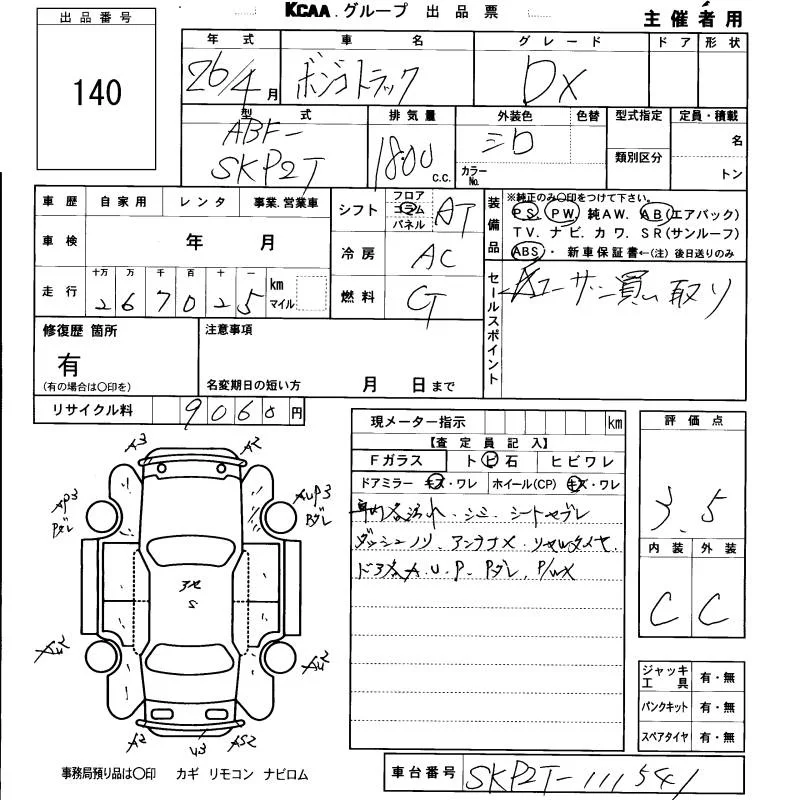 KCAA グループ 出品票
主催者用
出品番号
140
年式 車名 グレード ドア 形状
26/4月 ボンゴトラック DX
型式 排気量 外装色 色替 型式指定 定員・積載
ABF-
SKP2T
1800 c.c.
シロ
カラーNo.
類別区分
名
トン
車歴 自家用 レンタ 事業.営業車
車検 年 月
走行 十万 万 千 百 十 一
2 6 7 0 2 5 km マイル
シフト フロア コラム パネル AT
冷房 AC
燃料 G
装備品
※純正のみ○印をつけて下さい。
PS. PW. 純AW. AB(エアバック)
TV. ナビ. カワ. SR(サンルーフ)
ABS・ 新車保証書←(注)後日送りのみ
セールスポイント
ユーザー買い取り
修復歴 箇所
有
(有の場合は○印を)
注意事項
名変期日の短い方 月 日まで
リサイクル料 9060円
現メーター指示 km
【査定員記入】
Fガラス トビ石 ヒビワレ
ドアミラー キズ・ワレ ホイール(CP) キズ・ワレ
車内 汚れ・シミ・シートヤブレ
ダッシュノリ、アンテナX、
ドア A.U.P.Pダレ、P/WX
評価点
3.5
内装 外装
C C
ジャッキ工具 有・無
パンクキット 有・無
スペアタイヤ 有・無
A3 A2
AP3
Pダレ
AUP3
Pダレ
S
AU2 AU2
A2 U3 AS2
事務局預り品は○印 カギ リモコン ナビロム
車台番号 SKP2T-111541